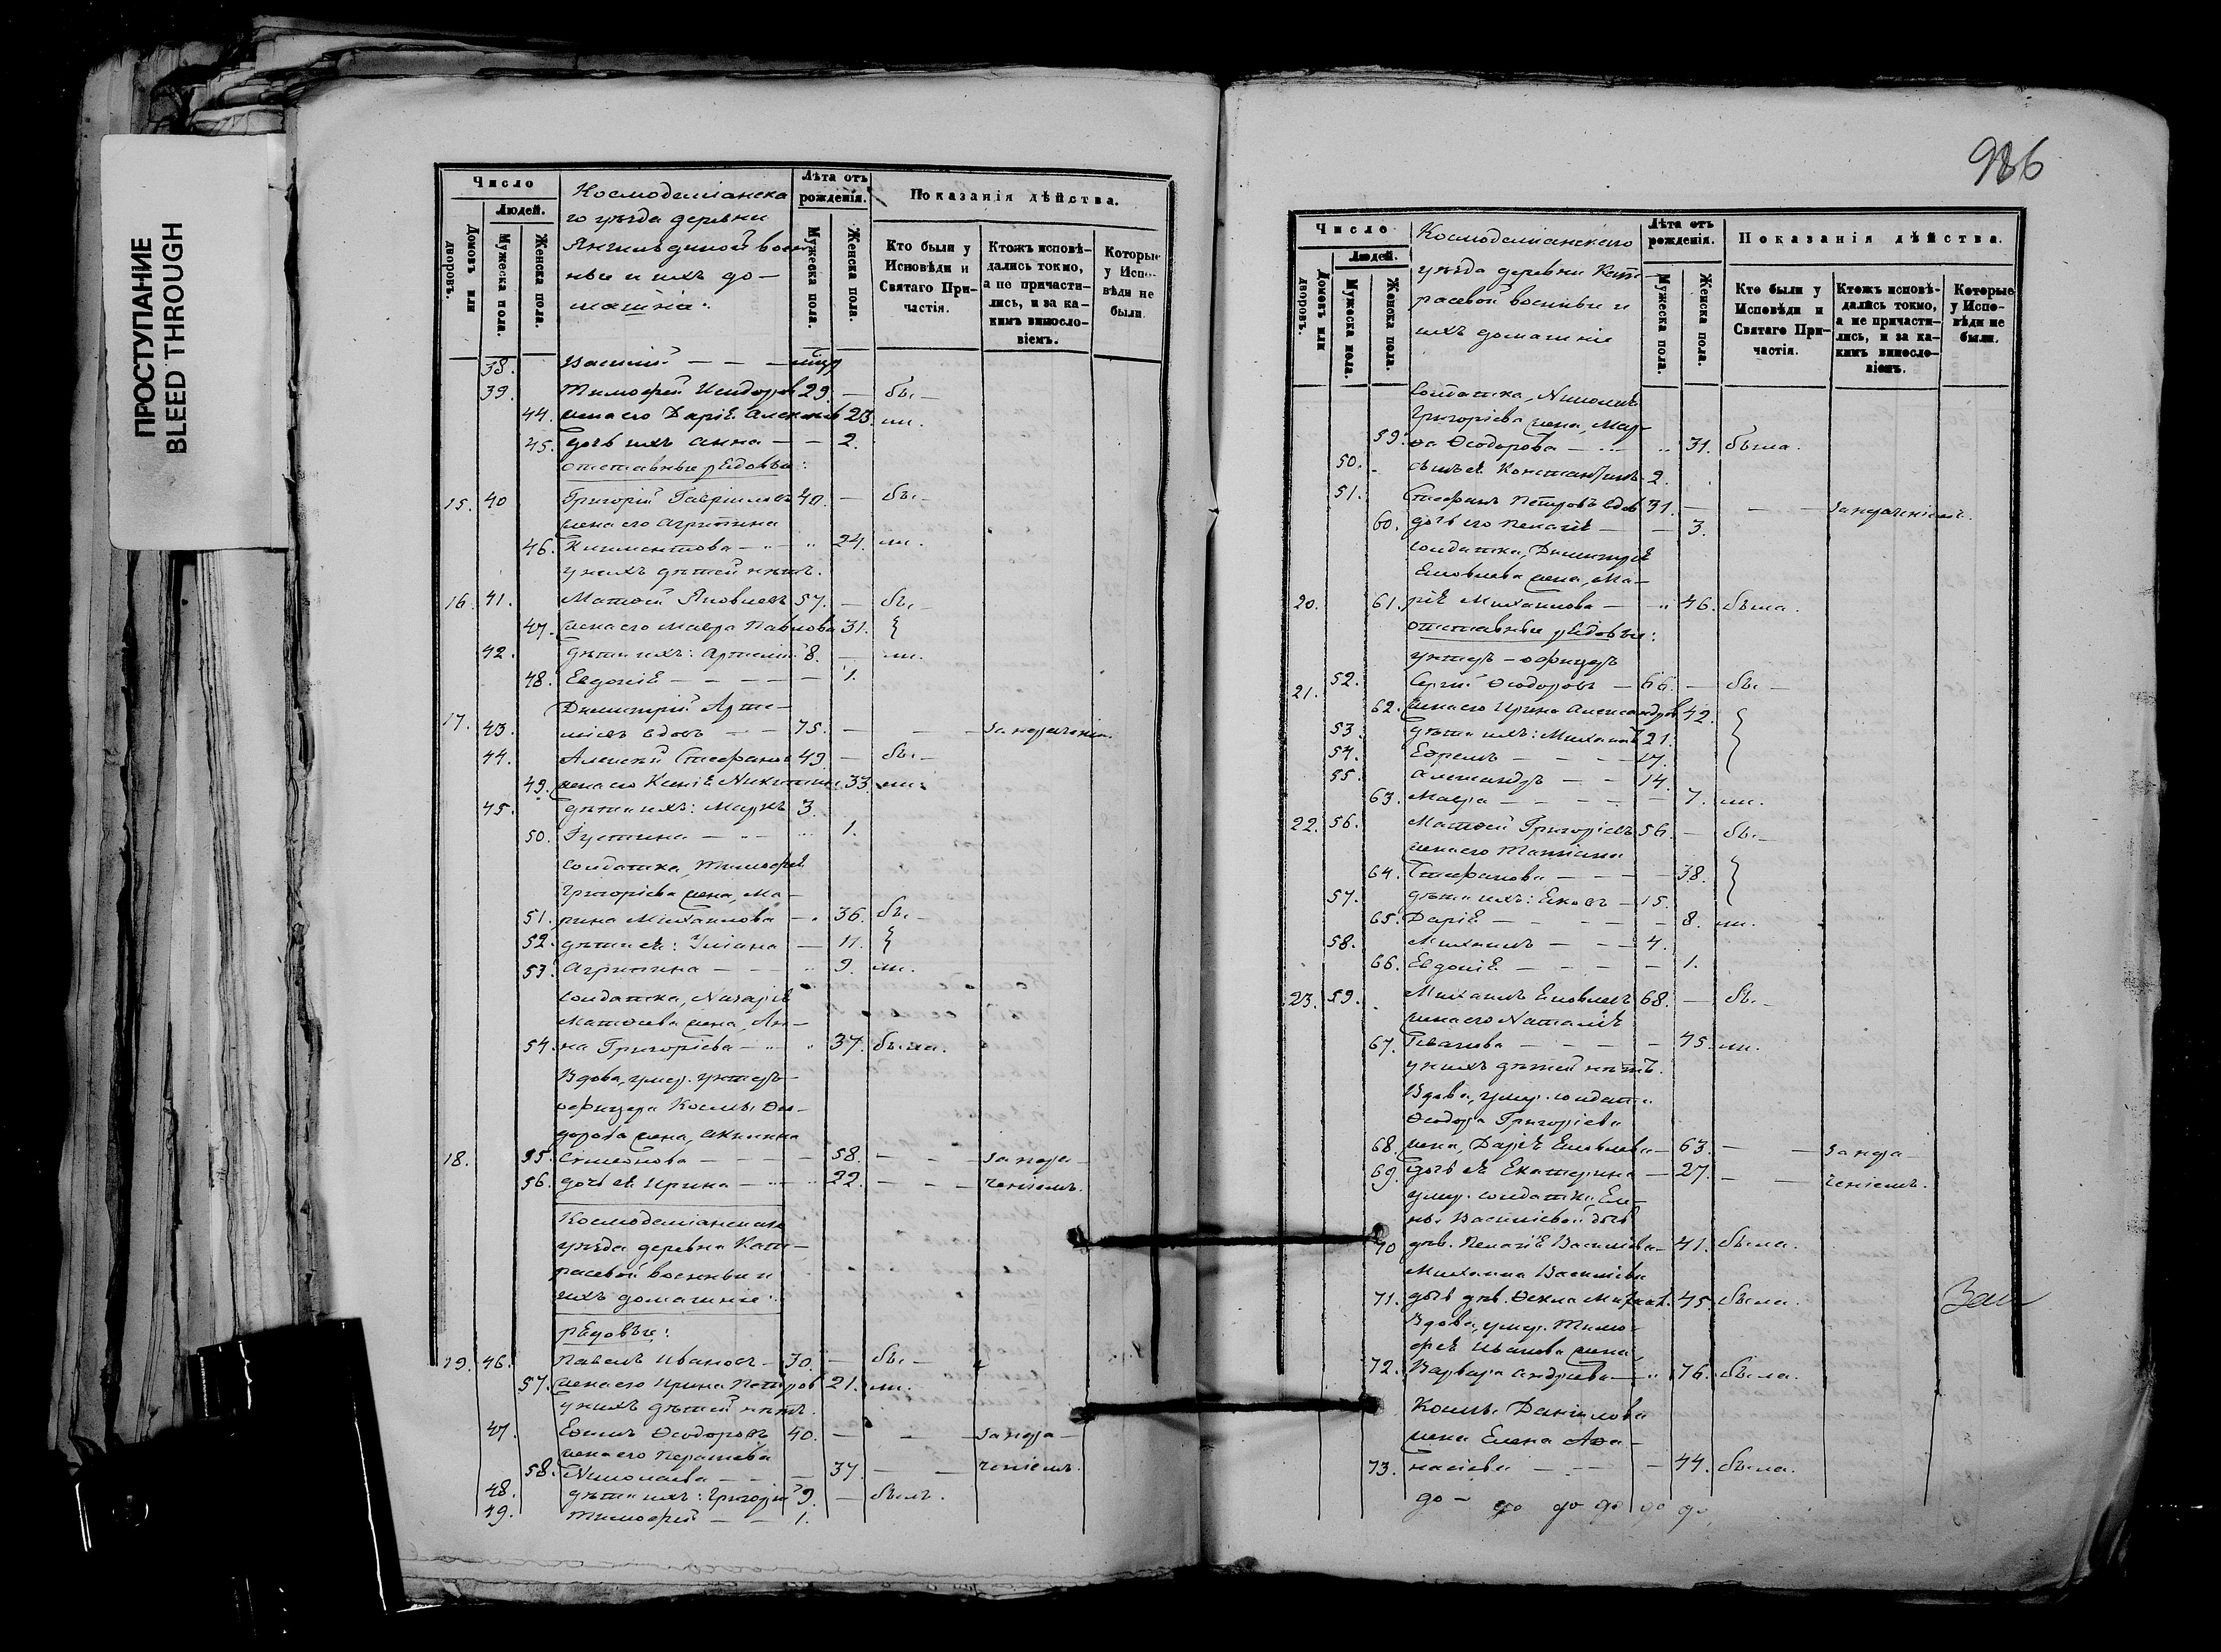 ПРОСТУПАНИЕ
BLEED THROUGH
Число
Людей.
Домовъ или дворовъ.
Мужеска пола.
Женска пола.
Космодеміанска
го уѣзда деревни
воен
ные и ихъ до-
машніа:
Лѣта отъ рожденія.
Мужеска пола.
Женска пола.
Показанія дѣйства.
Кто были у Исповѣди и Святаго При- частія.
Ктожъ исповѣ- дались токмо, а не причасти- лись, и за ка- кимъ виносло- віемъ.
Которые у Испо- вѣди не были.
38. Василій — — —
39. Тимофей Исидоров 29. — бы —
44. жена его Дарія Алексѣев 23. ли.
45. дочь ихъ Анна — — 2.
отставные рядовые:
15. 40 Григорій Гавріиловъ 40. — бы —
жена его Агрипина
46. Климентова — " — " 24. ли.
у нихъ дѣтей нѣтъ.
16. 41. Матѳей Яковлевъ 57. — бы —
47. жена его Мавра Павлова 31.
42. дѣти ихъ: Артемій 8. — ли.
48. Евдокія — — — — — 1.
Димитрій Арте-
17. 43. міевъ вдовъ — — 75. — — — за нераченіем
44. Алексѣй Стефанов 49. — бы —
49. жена его Ксенія Никитина 33. ли.
45. дѣти ихъ: Маркъ 3.
50. Іустина — " — " 1.
солдатка, Тимофея
Григоріева жена, Ма-
51. рина Михаилова — " 36. бы —
52. дѣти ея: Уліана — 11.
53. Агрипина — — — " 9. ли.
солдатка, Назарія
Матѳеева жена, Ан-
54. на Григоріева — " — " 37. была.
Вдова, умер. унтеръ-
офицера Козмы Ѳео-
дорова жена, Акилина
18. 55. Симеонова — — — — 58. — — — за нера-
56. дочь ея Ирина — " — " 22. — — — ченіемъ.
Космодеміанскаго
уѣзда деревни Кат-
расевой военные и
ихъ домашніе:
рядовые:
19. 46. Павелъ Ивановъ — 30. — бы —
57. жена его Ирина Петров 21. ли.
у нихъ дѣтей нѣтъ.
47. Еѳимъ Ѳеодоровъ 40. — — — за нера-
жена его Параскева
58. Николаева — — — 37. — — ченіемъ.
48. дѣти ихъ: Григорій 9. — былъ.
49. Тимофей — — 1.
986
Число
Людей.
Домовъ или дворовъ.
Мужеска пола.
Женска пола.
Космодеміанскаго
уѣзда деревни Кат-
расевой военные и
ихъ домашніе
Лѣта отъ рожденія.
Мужеска пола.
Женска пола.
Показанія дѣйства.
Кто были у Исповѣди и Святаго При- частія.
Ктожъ исповѣ- дались токмо, а не причасти- лись, и за ка- кимъ виносло- віемъ.
Которые у Испо- вѣди не были.
солдатка, Николая
Григоріева жена, Мар-
59. ѳа Ѳеодорова — " — " 31. была.
50. сынъ ея Константинъ 2.
51. Стефанъ Петровъ вдов 31. — — — за нераченіемъ.
60. дочь его Пелагія — — 3.
солдатка, Димитрія
Яковлева жена, Ма-
20. 61. рія Михаилова — " 46. была.
отставные рядовые:
унтеръ-офицеръ
21. 52. Сергій Ѳеодоровъ — 66. — бы —
62. жена его Ирина Александров 42.
53. дѣти ихъ: Михаилъ 21.
54. Ефремъ — — — — 17.
55. Александръ — — 14.
63. Мавра — — — — — 7. ли.
22. 56. Матѳей Григоріевъ 56. — бы —
жена его Татіана
64. Стефанова — — — — 38.
57. дѣти ихъ: Яковъ — 15.
65. Дарія — — — — — 8. ли.
58. Михаилъ — — — 4.
66. Евдокія — — — — 1.
23. 59. Михаилъ Яковлевъ 68. — бы —
жена его Наталія
67. Иванова — — — — 45. ли.
у нихъ дѣтей нѣтъ.
Вдова, умер. солдата
Ѳеодора Григоріева
68. жена, Дарія Яковлева — 63. — — за нера-
69. дочь ея Екатерина — 27. — — ченіемъ.
умер. солдатки Еле-
ны Василіевой дочь
70 дѣв. Пелагія Василіева — 41. была.
Михаила Василіева
71. дочь дѣв. Ѳекла Михаил. 45. была.
Вдова, умер. Тимо-
фея Иванова жена,
72. Варвара Андреева — " 76. была.
Козмы Даніилова
жена Елена Аѳа-
73. насіева — — — — 44. была.
до — до до до до до